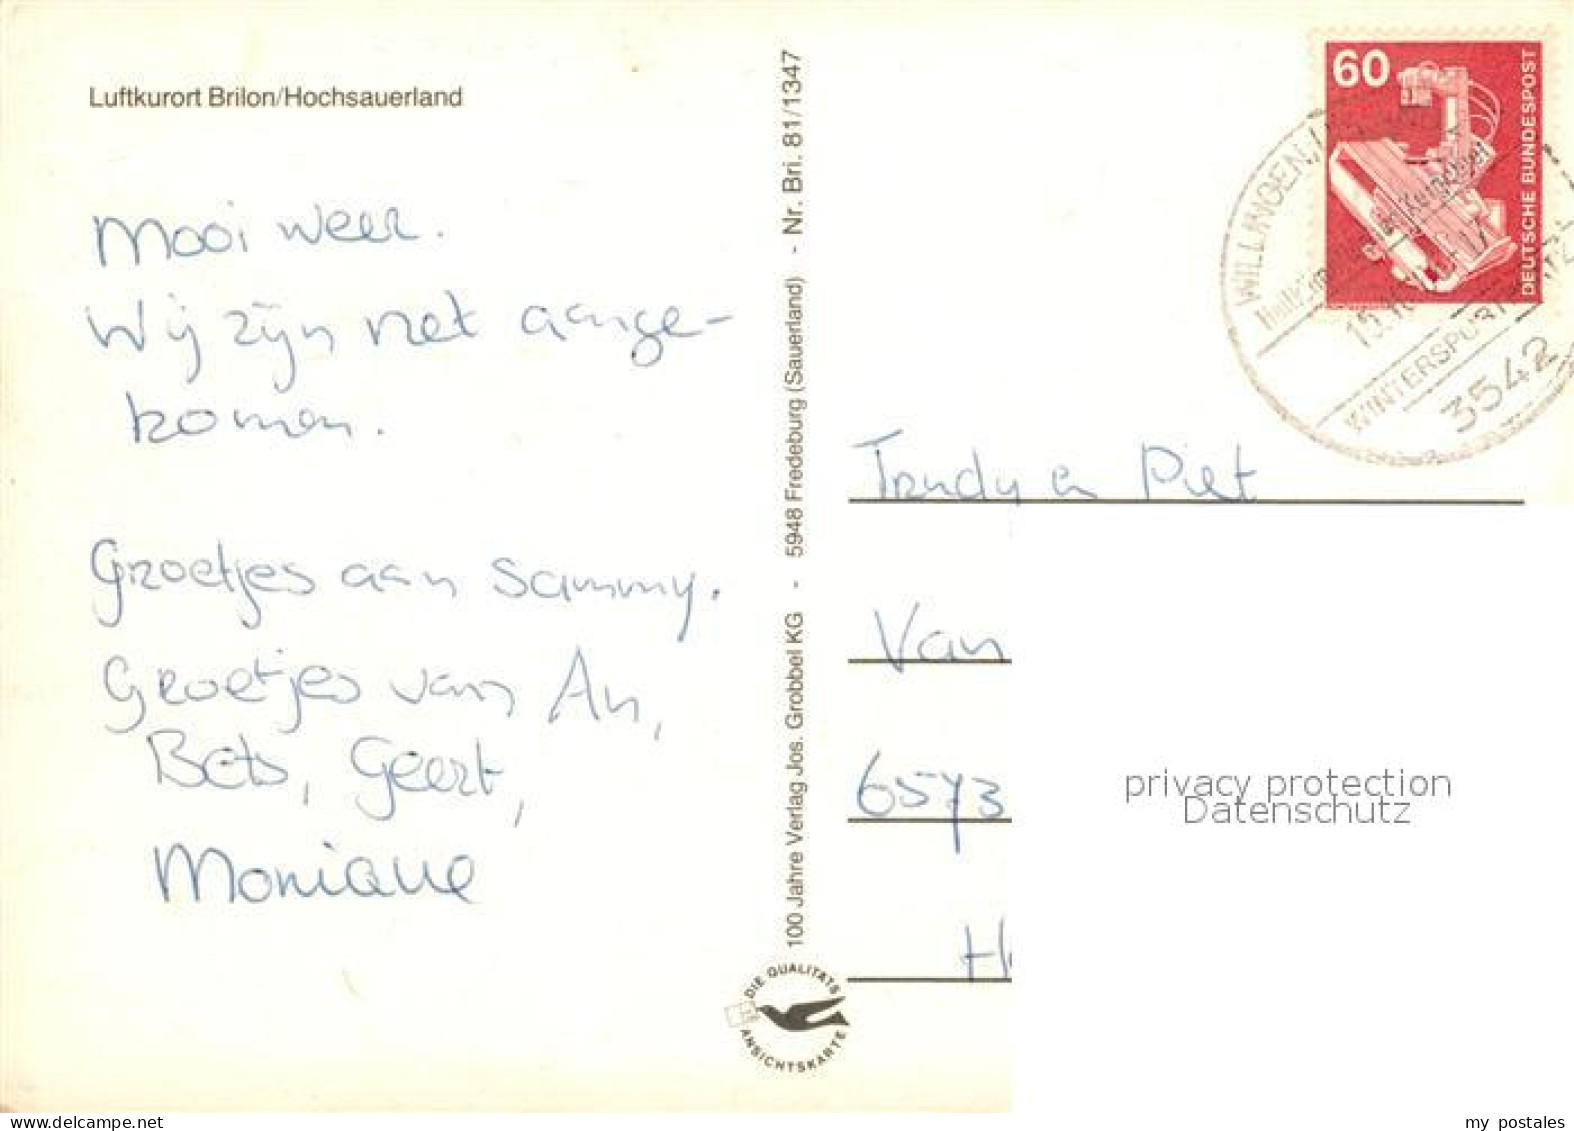 Luftkurort Brilon/Hochsauerland
Mooi weer.
Wij zijn net aange-
komen.
Groetjes aan Sammy.
Groetjes van An,
Bets, Geert,
Monique
100 Jahre Verlag Jos. Grobbel KG · 5948 Fredeburg (Sauerland) · Nr. Bri. 81/1347
DIE QUALITÄTS
ANSICHTSKARTE
60
DEUTSCHE BUNDESPOST
WILLINGEN,
WINTERSPORT
3542
Trudy en Piet
Van
6573
privacy protection
Datenschutz
www.ansichtskartenversand.com
my postales